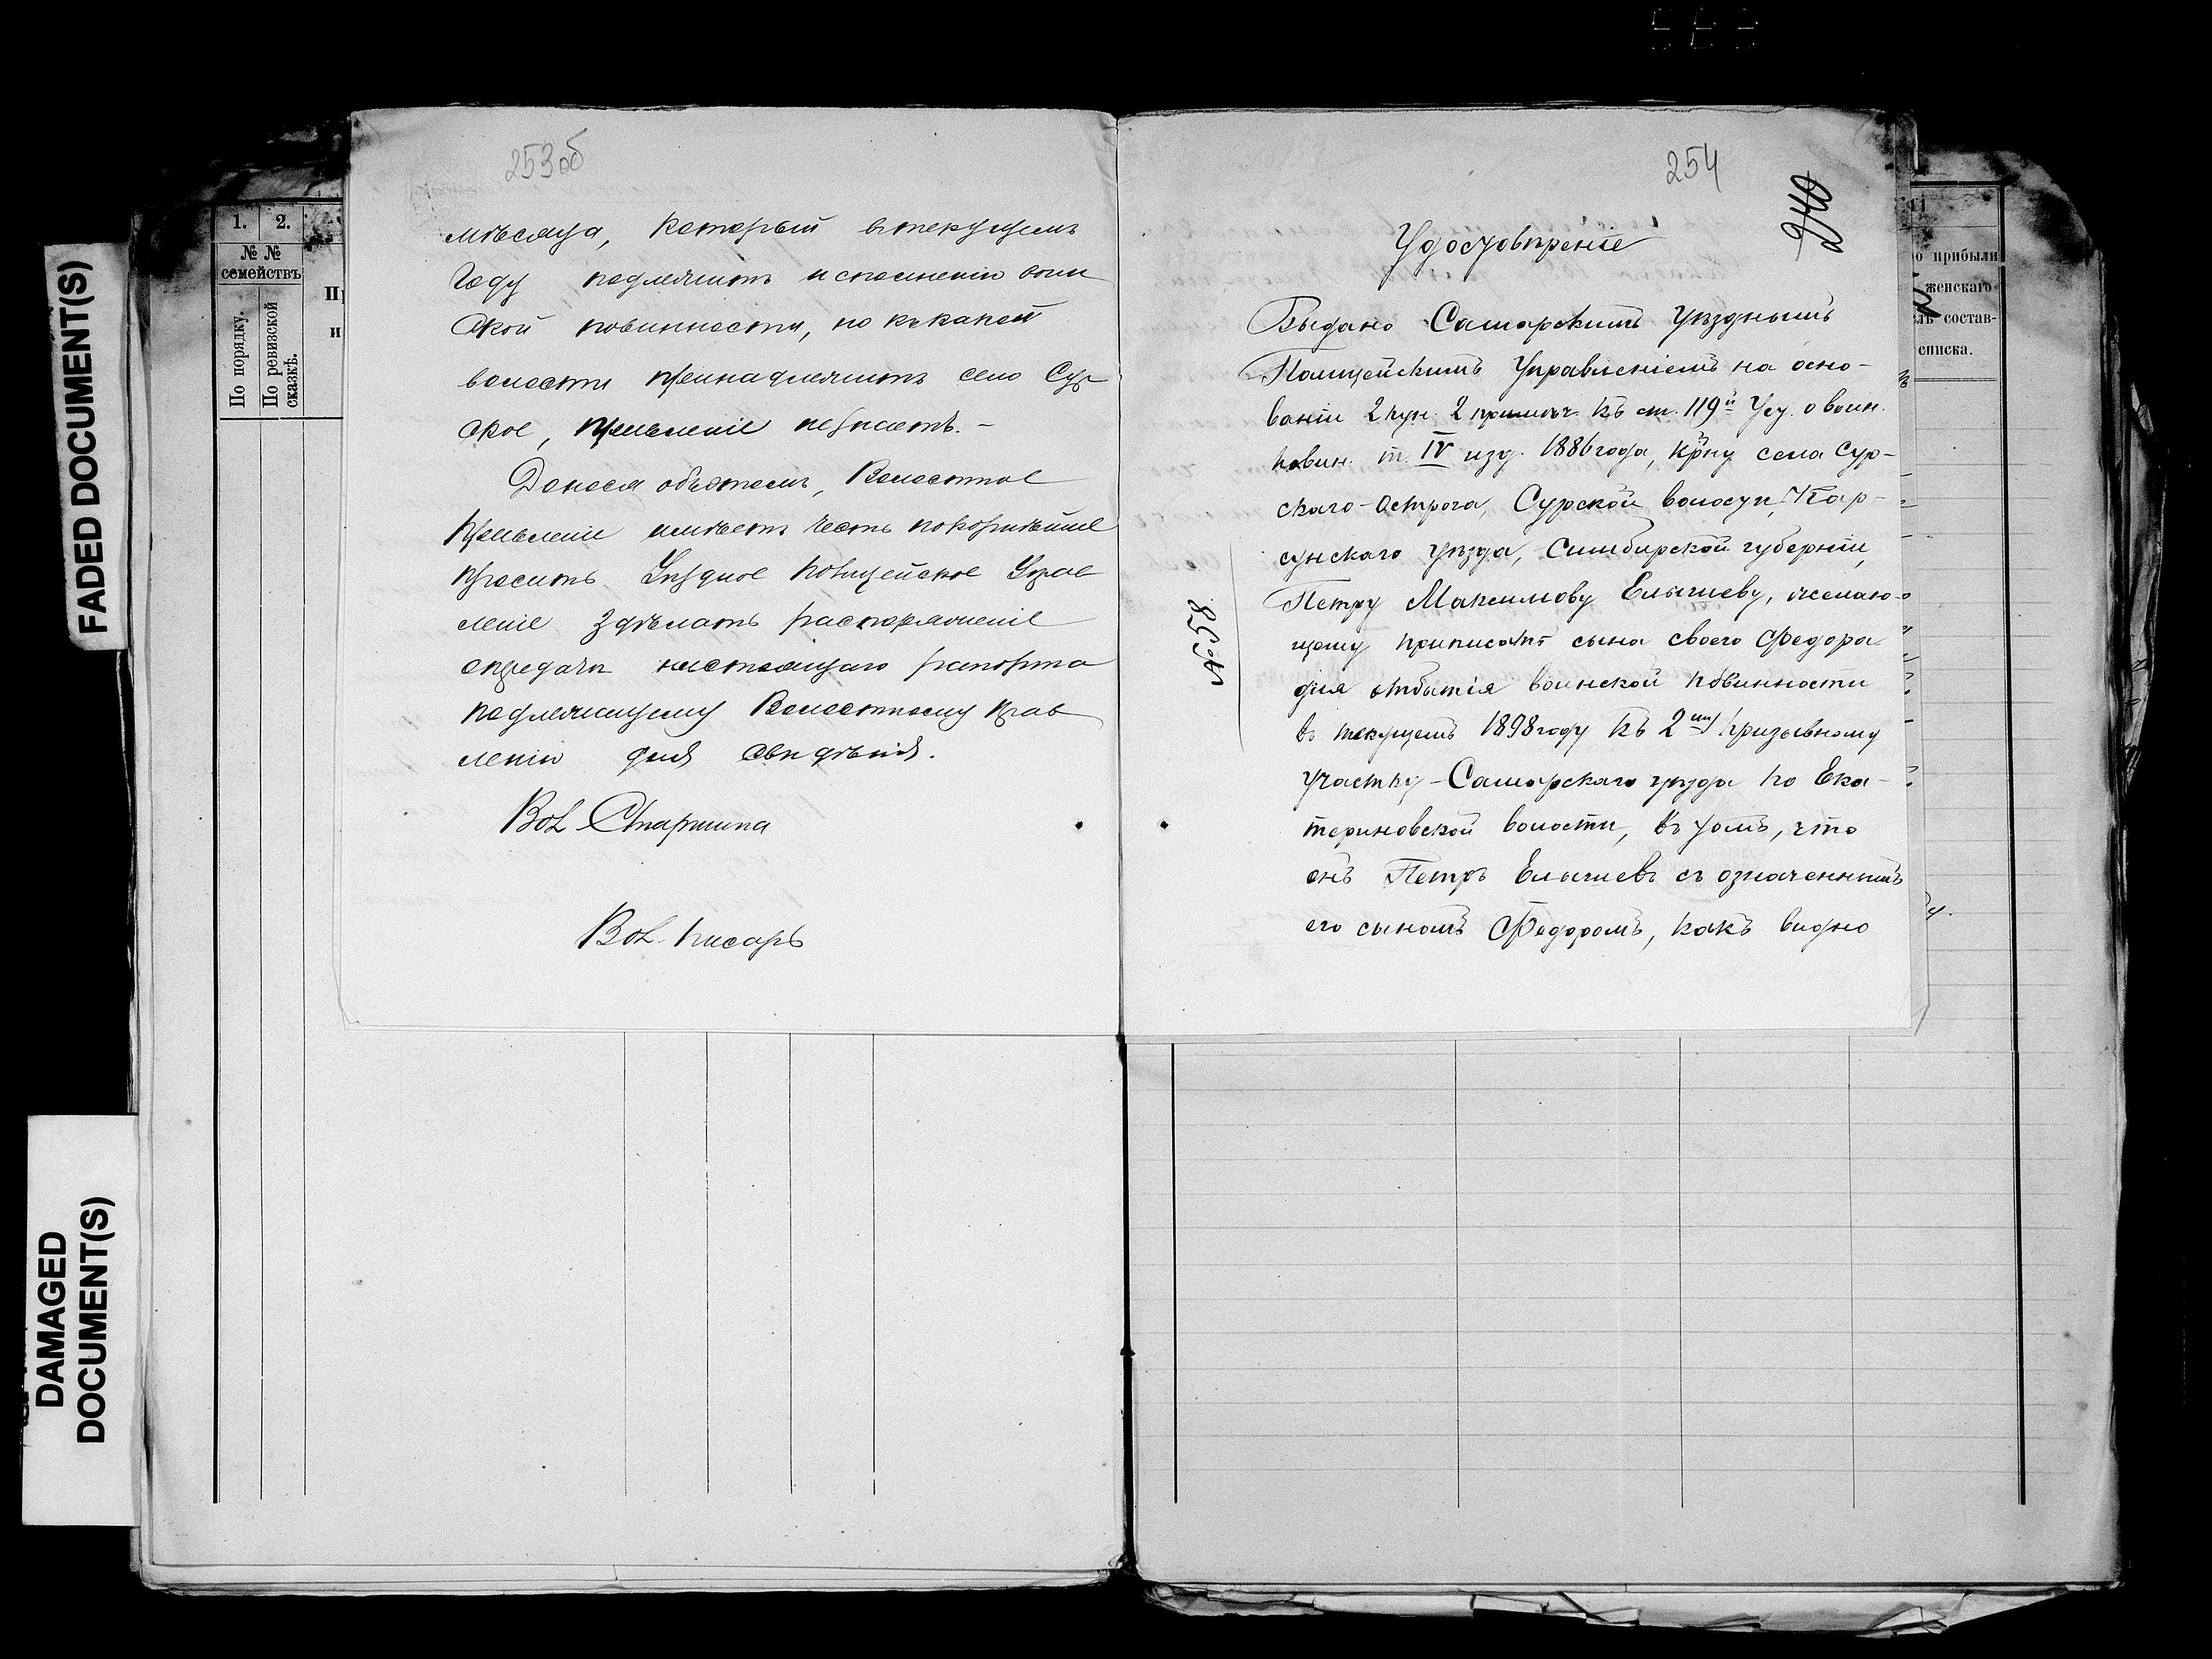 FADED DOCUMENT(S)
DAMAGED
DOCUMENT(S)
1. 2.
№ №
семействъ
По порядку.
По ревизской
сказкѣ.
253 об
мѣсяца, который втекущемъ
Году подлежитъ исполненію воин
ской повинности, но ккакой
волости преннадлежитъ село Сур
ское, правленіе незнаетъ. -
Донося обьэтомъ, Волостное
Правленіе имѣетъ честь покорнѣйше
просить Уѣздное Полицейское Управ
леніе здѣлать распоряженіе
опередачи настоящаго рапорта
подлежащему Волостному Прав
ленію для свидѣнія.
Вол. Старшина
Вол. Писарь
254
240
Удостовѣреніе
Выдано Самарскимъ Уѣзднымъ
Полицейскимъ Управленіемъ на осно-
ваніи 2 пун. 2 примѣч. къ ст. 119й Уст. о воин.
повин. т. IV изд. 1886 года, кр-ну села Сур-
скаго-Острога, Сурской волости, Кар-
сунскаго уѣзда, Симбирской губерніи,
Петру Максимову Елычеву, желаю-
щему приписать сына своего Федора
для отбытія воинской повинности
въ текущемъ 1898 году къ 2му призывному
участку Самарскаго уѣзда по Ека-
териновской волости, въ томъ, что
онъ Петръ Елычевъ съ означеннымъ
его сыномъ Федоромъ, какъ видно
прибыли
женскаго
состав-
списка.